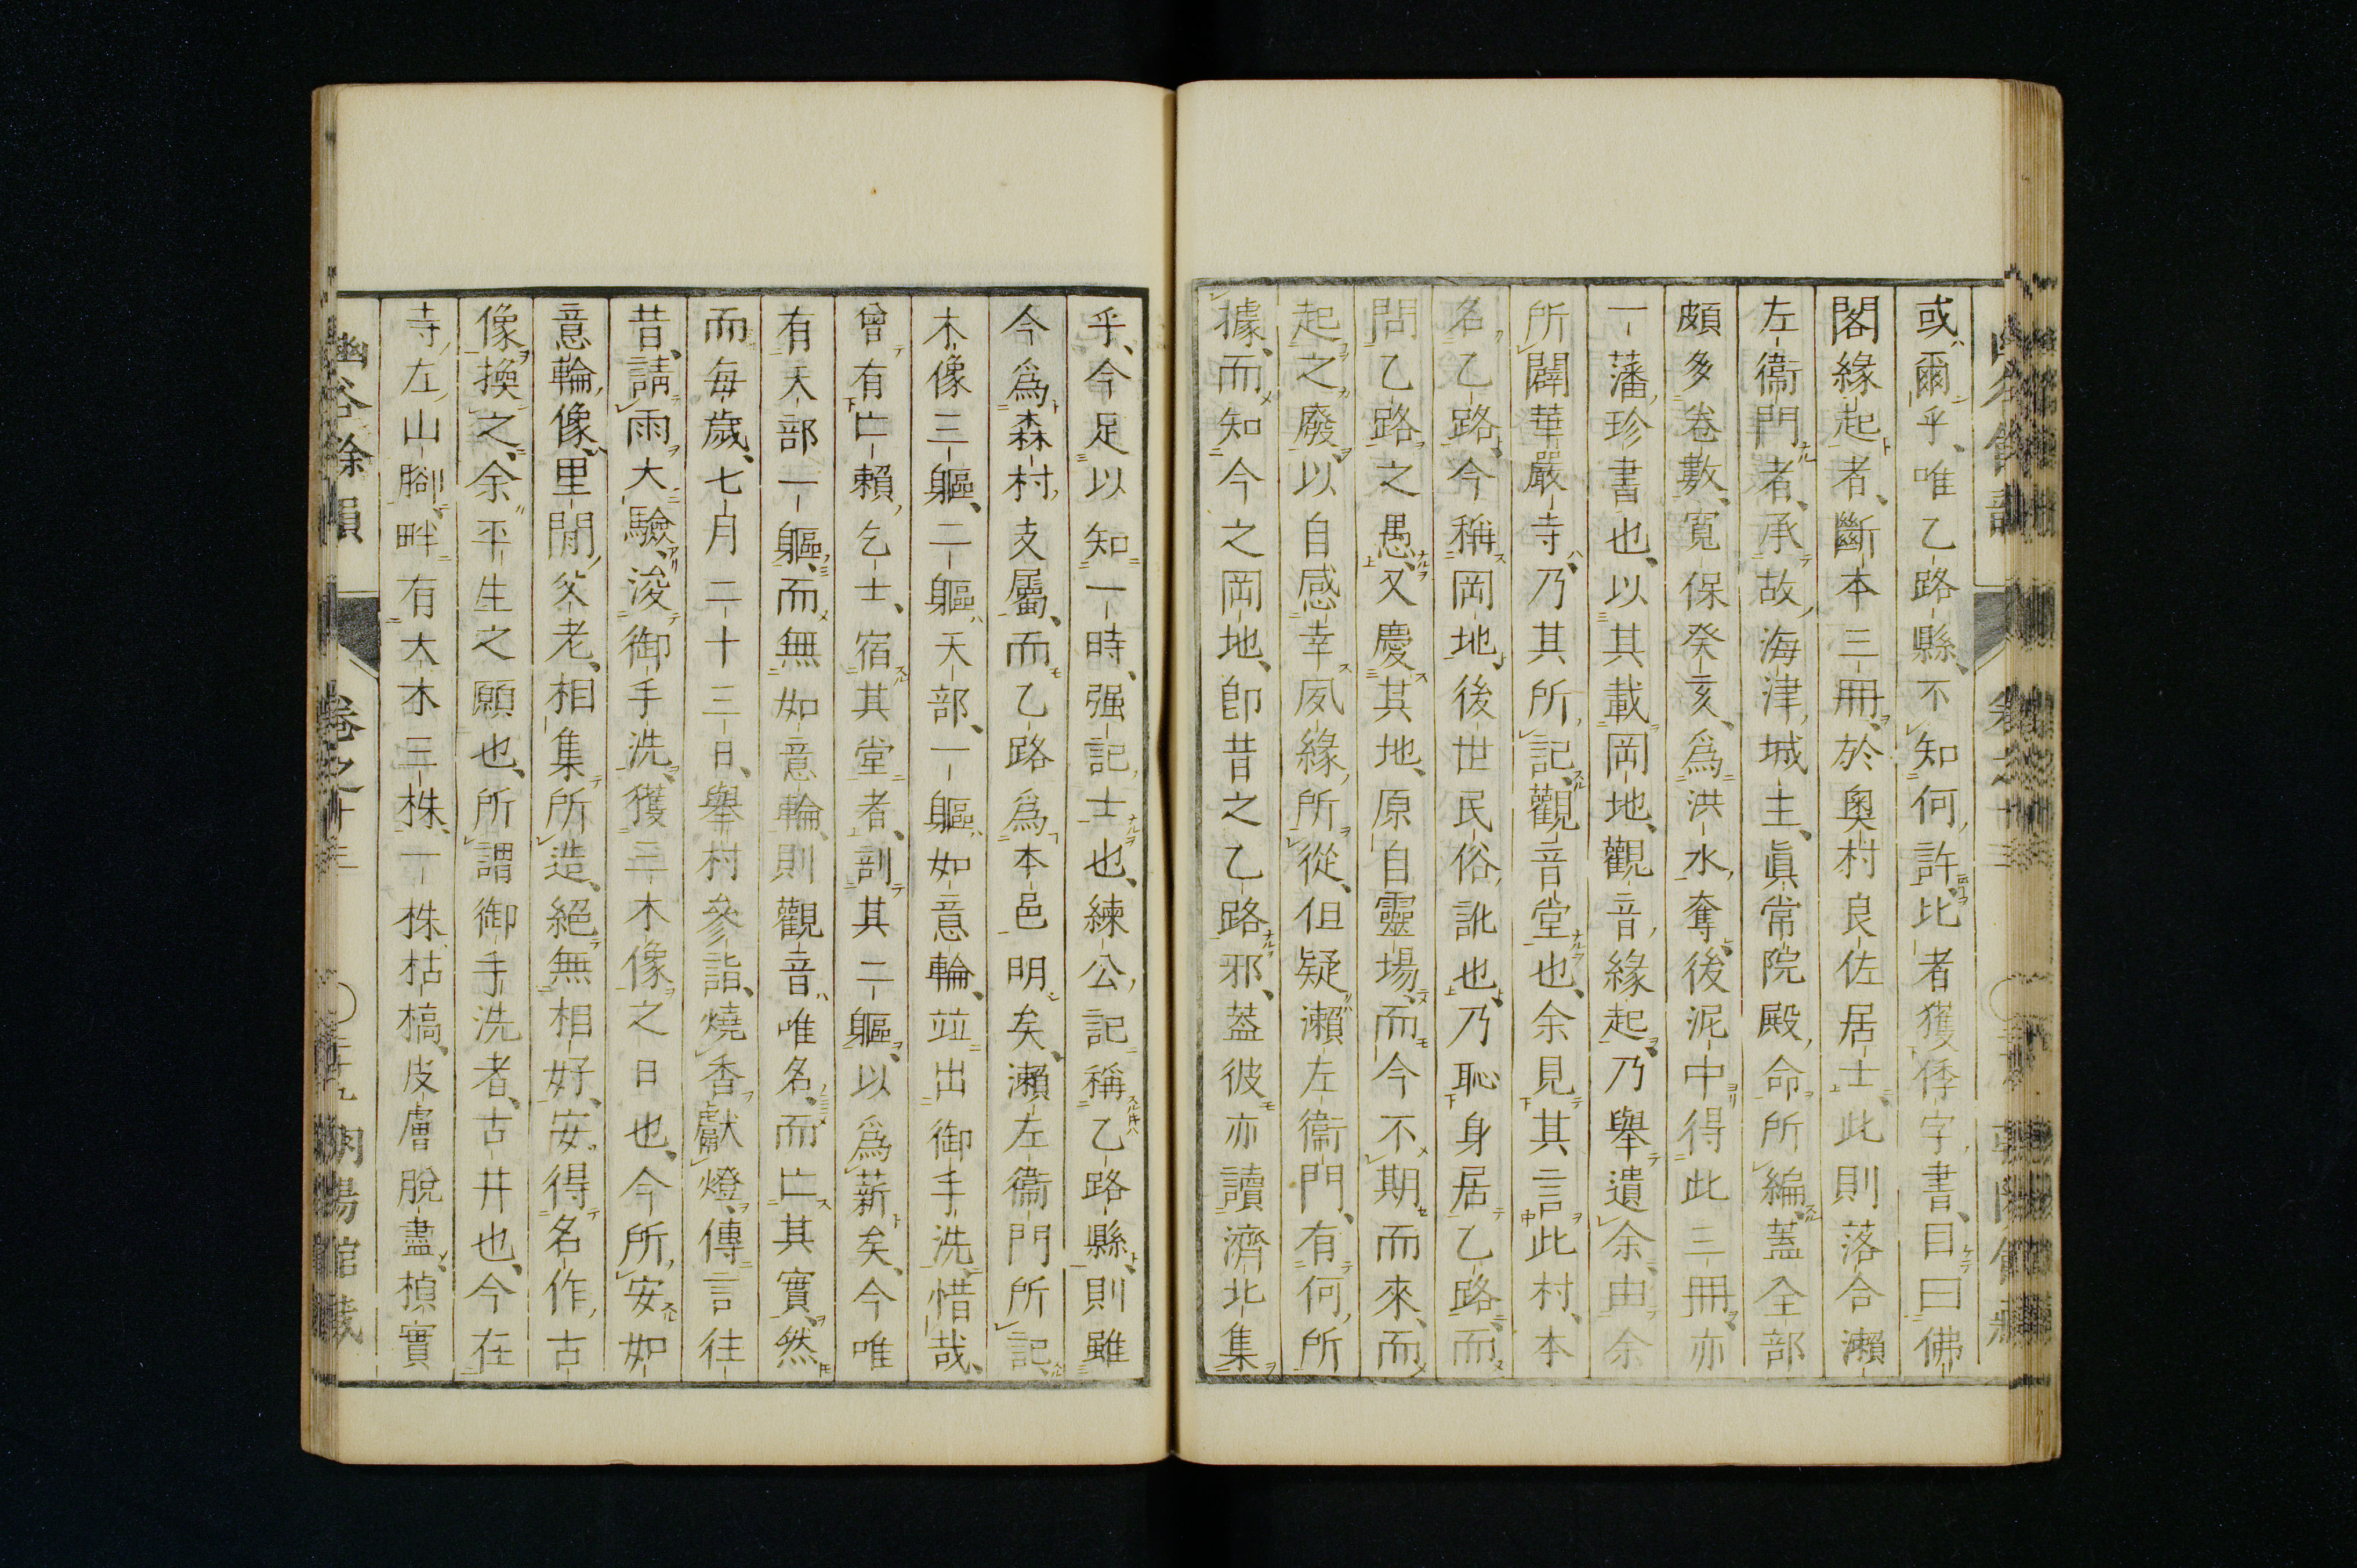 或爾乎、唯乙路縣、不知何許、比者獲倭字書、目曰佛
閣緣起者、斷本三冊、於奧村良佐居士、此則落合瀨
左衞門者、承故海津城主、眞常院殿、命所編、蓋全部
頗多卷數、寬保癸亥、爲洪水奪、後泥中得此三冊、亦
一藩珍書也、以其載岡地、觀音緣起、乃舉遺余、由余
所闢華嚴寺、乃其所記、觀音堂也、余見其言此村、本
名乙路、今稱岡地、後世民俗訛也、乃恥身居乙路、而
問乙路之愚、又慶其地、原自靈場、而今不期而來、而
起之廢、以自感幸夙緣、所從、但疑瀨左衞門、有何所
據、而知今之岡地、卽昔之乙路邪、蓋彼亦讀濟北集
乎、今足以知一時、强記士也、練公記稱乙路縣、則雖
今爲森村支屬、而乙路爲本邑明矣、瀨左衞門所記、
木像三軀、二軀天部、一軀如意輪、竝出御手洗、惜哉、
曾有亡賴乞士、宿其堂者、剖其二軀、以爲薪矣、今唯
有天部一軀、而無如意輪、則觀音唯名、而亡其實、然
而每歲、七月二十三日、舉村參詣、燒香獻燈、傳言往
昔、請雨大驗、浚御手洗、獲三木像之日也、今所安如
意輪像、里閒父老、相集所造、絕無相好、安得名作古
像換之、余平生之願也、所謂御手洗者、古井也、今在
寺左山腳、畔有大木三株、一株枯槁、皮膚脫盡、楨實
幽谷餘韻 卷之十三 朝陽館藏